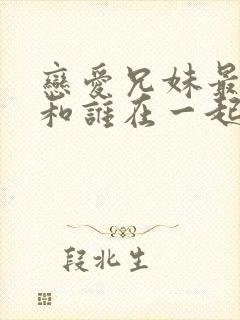 戀愛兄妹最
和誰在一起
段北生